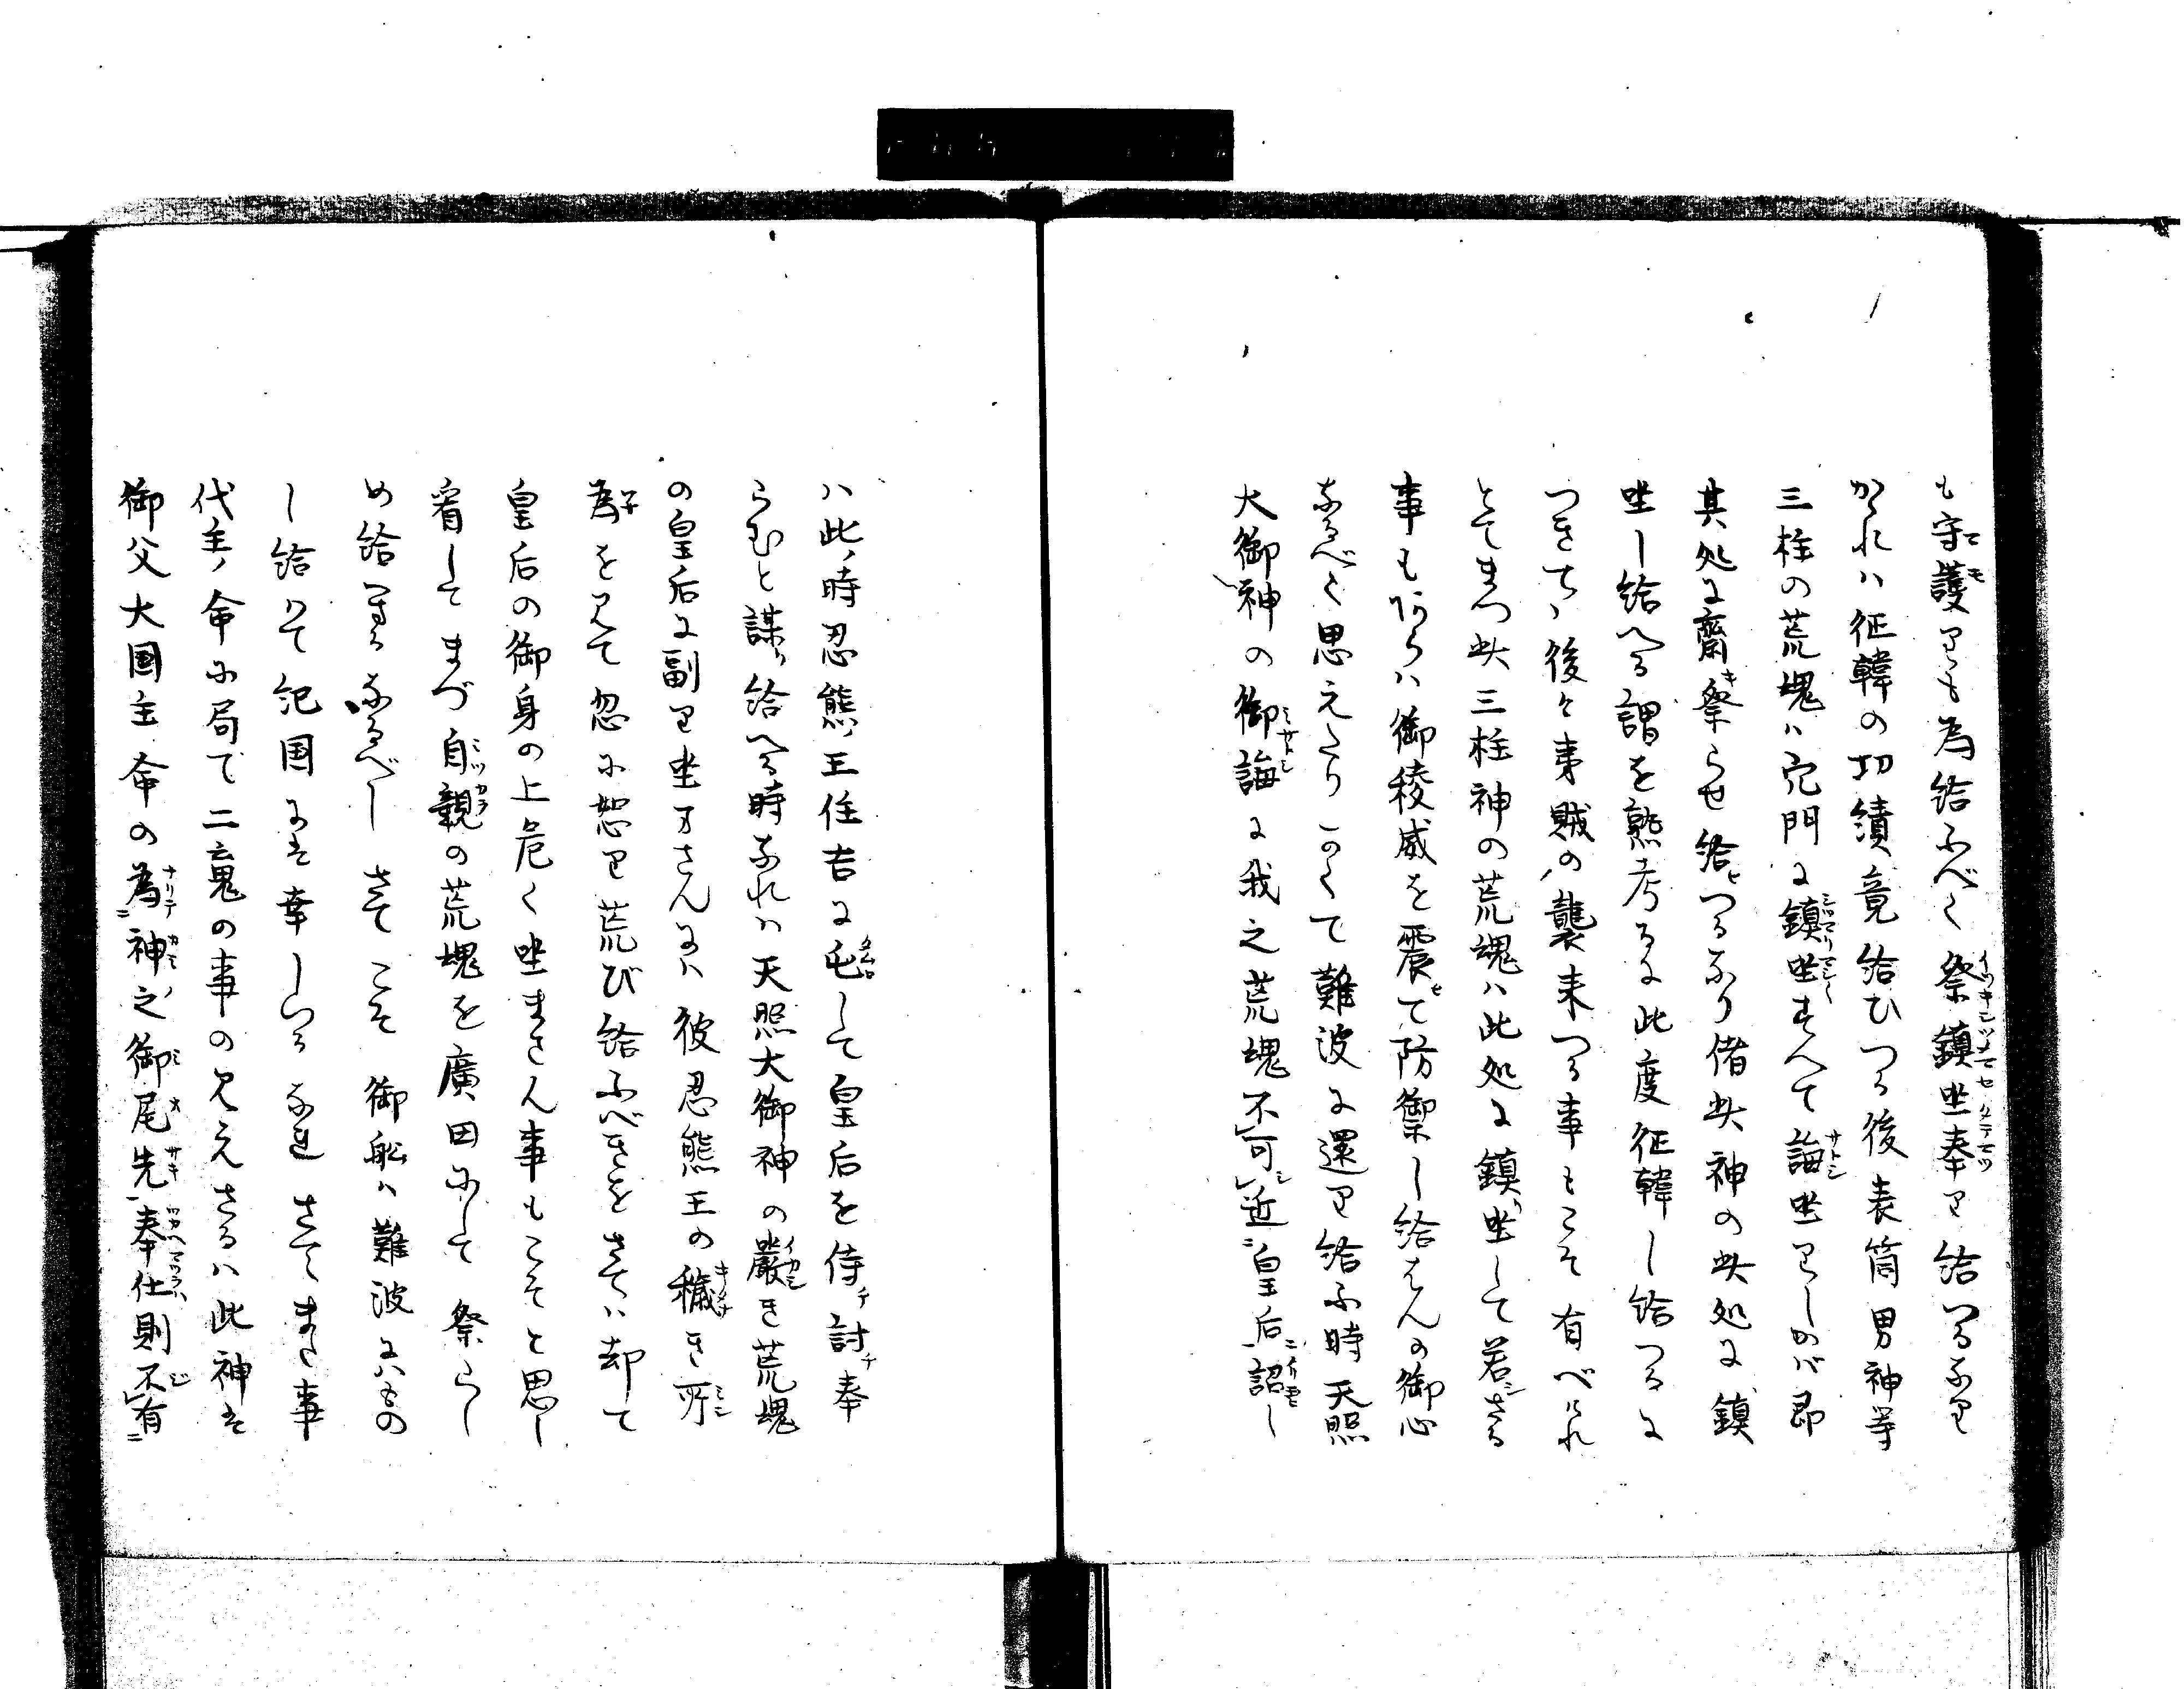 も守護りも為給ふべく祭鎮坐奉り給つるなり
かゝれハ征韓の功績竟給ひつる後表筒男神等
三柱の荒魂ハ穴門に鎮坐すへて誨坐りしかバ即
其処に齋祭らせ給つるなり偖此神の此処に鎮
坐し給へる謂を熟考るに此度征韓し給つるに
つきてハ後々来賊の襲来つる事もこそ有べけれ
とてまつ此三柱神の荒魂ハ此処に鎮坐して若さる
事もあらハ御稜威を震て防禦し給はんの御心
なるべく思えたりかくて難波に還り給ふ時天照
大御神の御誨に我之荒魂不可近皇后詔し
ハ此時忍熊王住吉に屯して皇后を待討奉
らむと謀り給へる時なれハ天照大御神の嚴き荒魂
の皇后に副り坐まさんにハ彼忍熊王の穢き所
為を見て忽に恕り荒び給ふべきをさてハ却て
皇后の御身の上危く坐まさん事もこそと思し
看してまづ自親の荒魂を廣田にして祭らし
め給つるなるべしさてこそ御船ハ難波にハものし
給はて紀国には幸しつるなれさてまた事
代主命に局て二魂の事の見えさるハ此神は
御父大国主命の為神之御尾先奉仕則不有